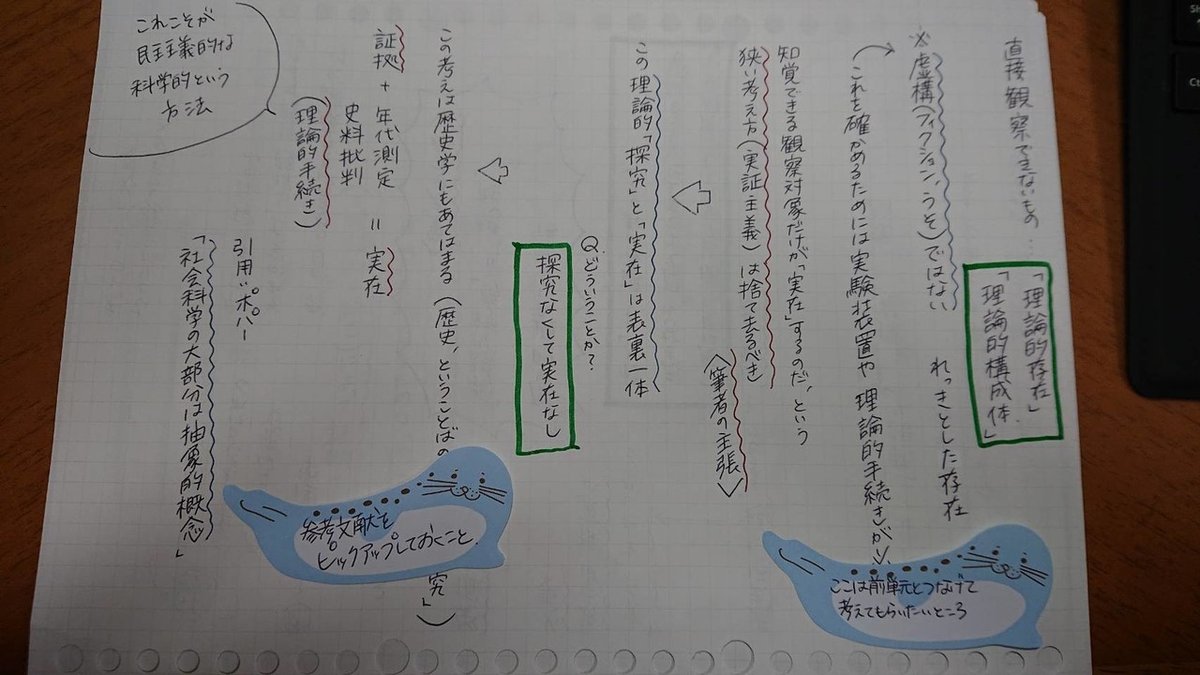 直接観察できないもの…
「理論的存在」
「理論的構成体」
※虚構(フィクション、うそ)ではない れっきとした存在
これを確かめるためには実験装置や理論的手続きが
ここは前単元とつなげて
考えてもらいたいところ
知覚できる観察対象だけが「実在」するのだ、という
狭い考え方(実証主義)は捨て去るべき
〈筆者の主張〉
この理論的「探究」と「実在」は表裏一体
Q.どういうことか?
探究なくして実在なし
この考えは歴史学にもあてはまる(歴史、ということばの
究」)
参考文献を
ピックアップしておくこと
証拠 + 年代測定 = 実在
史料批判
(理論的手続き)
引用:ポパー
「社会科学の大部分は抽象的概念」
これこそが
民主主義的な
科学的という
方法